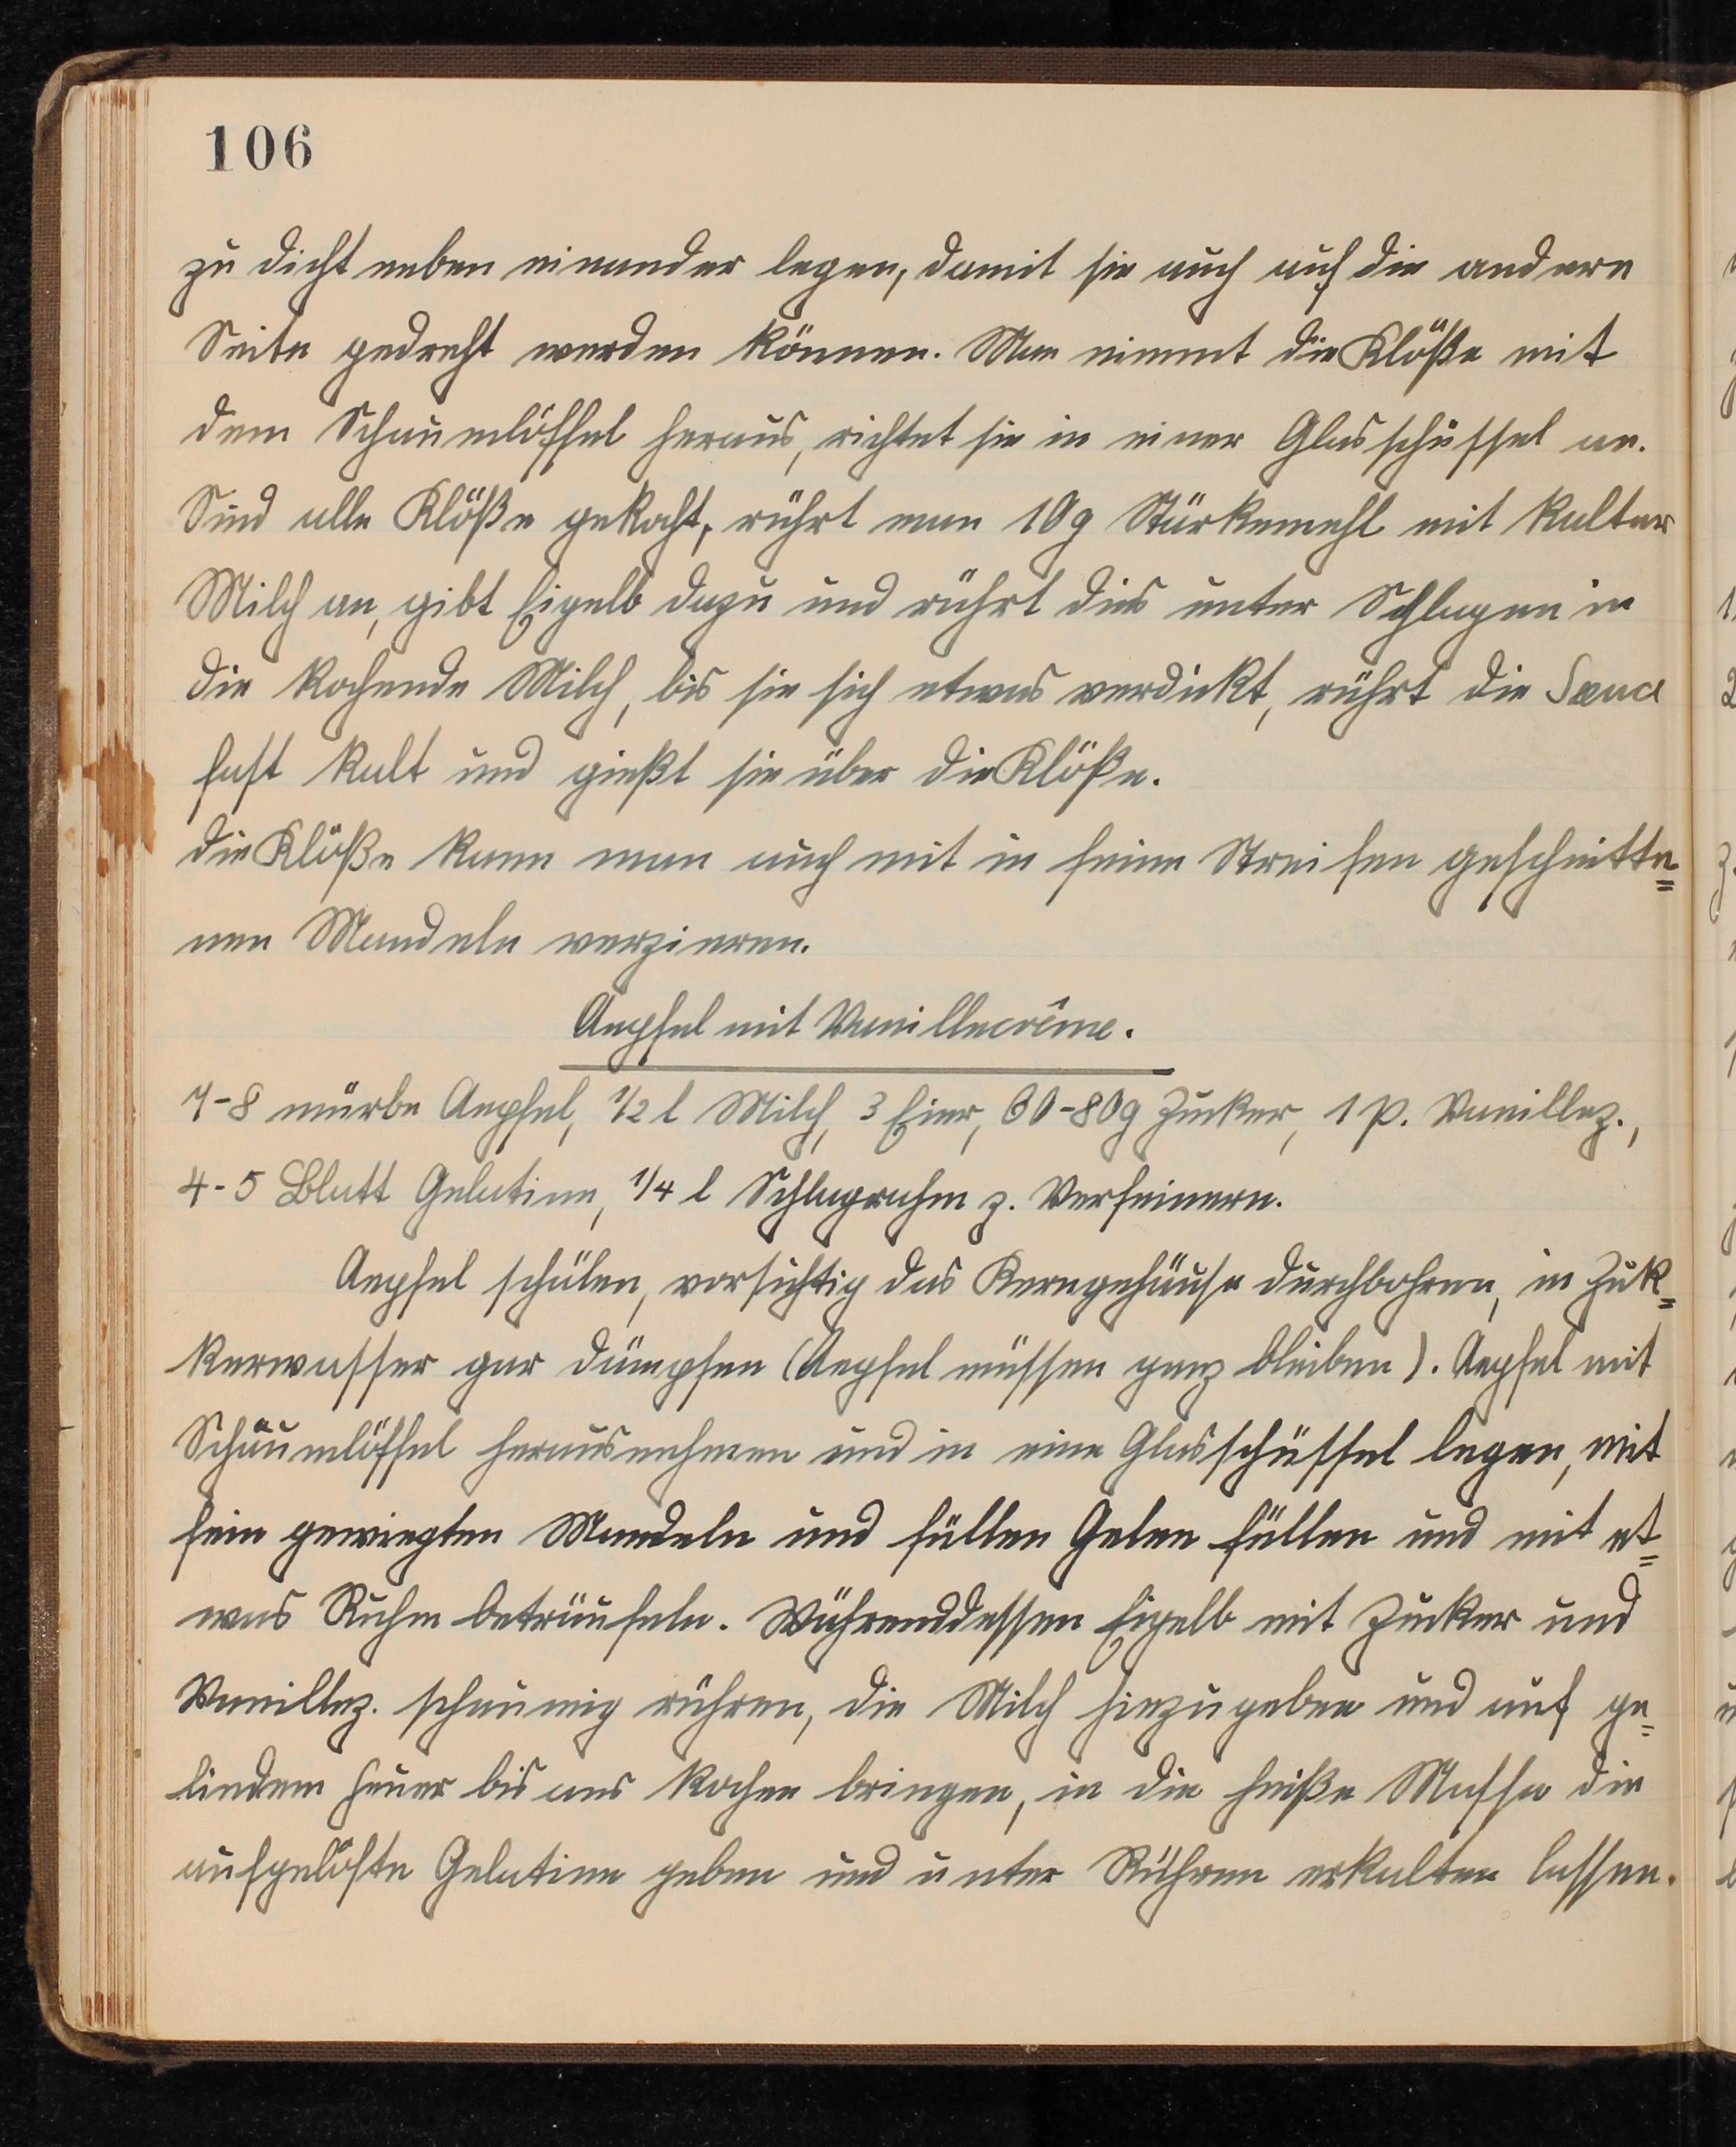 106
zu dicht neben einander legen, damit sie auch auf die andere
Seite gedreht werden können. Man nimmt die Klöße mit
dem Schaumlöffel heraus, richtet sie in einer Glasschüssel an.
Sind alle Klöße gekocht, rührt man 10g Stärkemehl mit kalter
Milch an, gibt Eigelb dazu und rührt dies unter Schlagen in
die kochende Milch, bis sie sich etwas verdickt, rührt die Sauce
fast kalt und gießt sie über die Klöße.
die Klöße kann man auch mit in feine Streifen geschnitte=
nen Mandeln verzieren.
Aepfel mit Vanillecrême.
7-8 mürbe Aepfel, 1/2 l Milch, 3 Eier, 60-80g Zucker, 1 P. Vanillez.,
4-5 Blatt Gelatine, 1/4 l Schlagrahm z. Verfeinern.
Aepfel schälen, vorsichtig das Kerngehäuse durchbohren, in Zuk=
kerwasser gar dämpfen (Aepfel müssen ganz bleiben). Aepfel mit
Schäumlöffel herausnehmen und in eine Glasschüssel legen, mit
fein gewiegten Mandeln und füllen Gelee füllen und mit et=
was Ruhm beträufeln. Währenddessen Eigelb mit Zucker und
Vanillez. schaumig rühren, die Milch hinzugeben und auf ge=
lindem Feuer bis ans Kochen bringen, in die heiße Masse die
aufgelöste Gelatine geben und unter Rühren erkalten lassen.